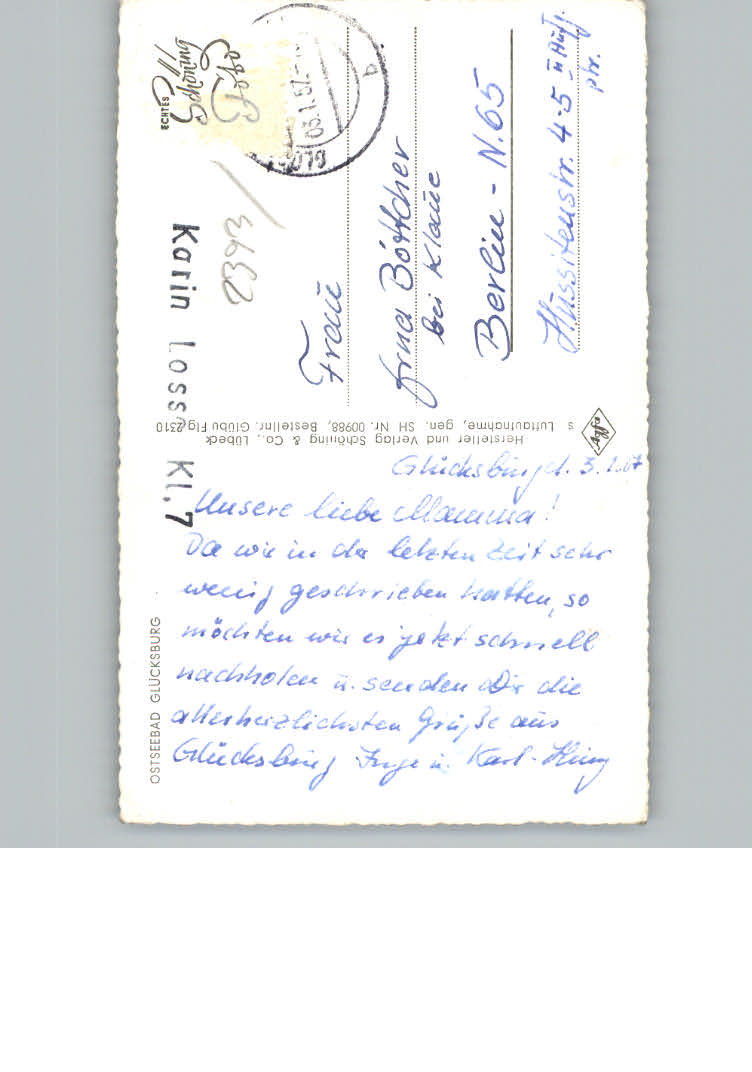 ECHTES
Schöning
Foto
03.1.67
Karin Loss Kl,7
3693
Frau
Erna Böttcher
bei Klaue
Berlin - N. 65
Hussitenstr. 4-5 II Aufg.
ptr.
Hersteller und Verlag Schöning & Co., Lübeck
s Luftaufnahme, gen. SH Nr. 00988, Bestellnr. Glübu Flg 2310
Agfa
OSTSEEBAD GLÜCKSBURG
Glücksburg d. 3.1.67
Unsere liebe Mamma!
Da wir in der letzten Zeit sehr
wenig geschrieben hatten, so
möchten wir es jetzt schnell
nachholen u. senden Dir die
allerherzlichsten Grüße aus
Glücksburg Inge u. Karl-Heinz